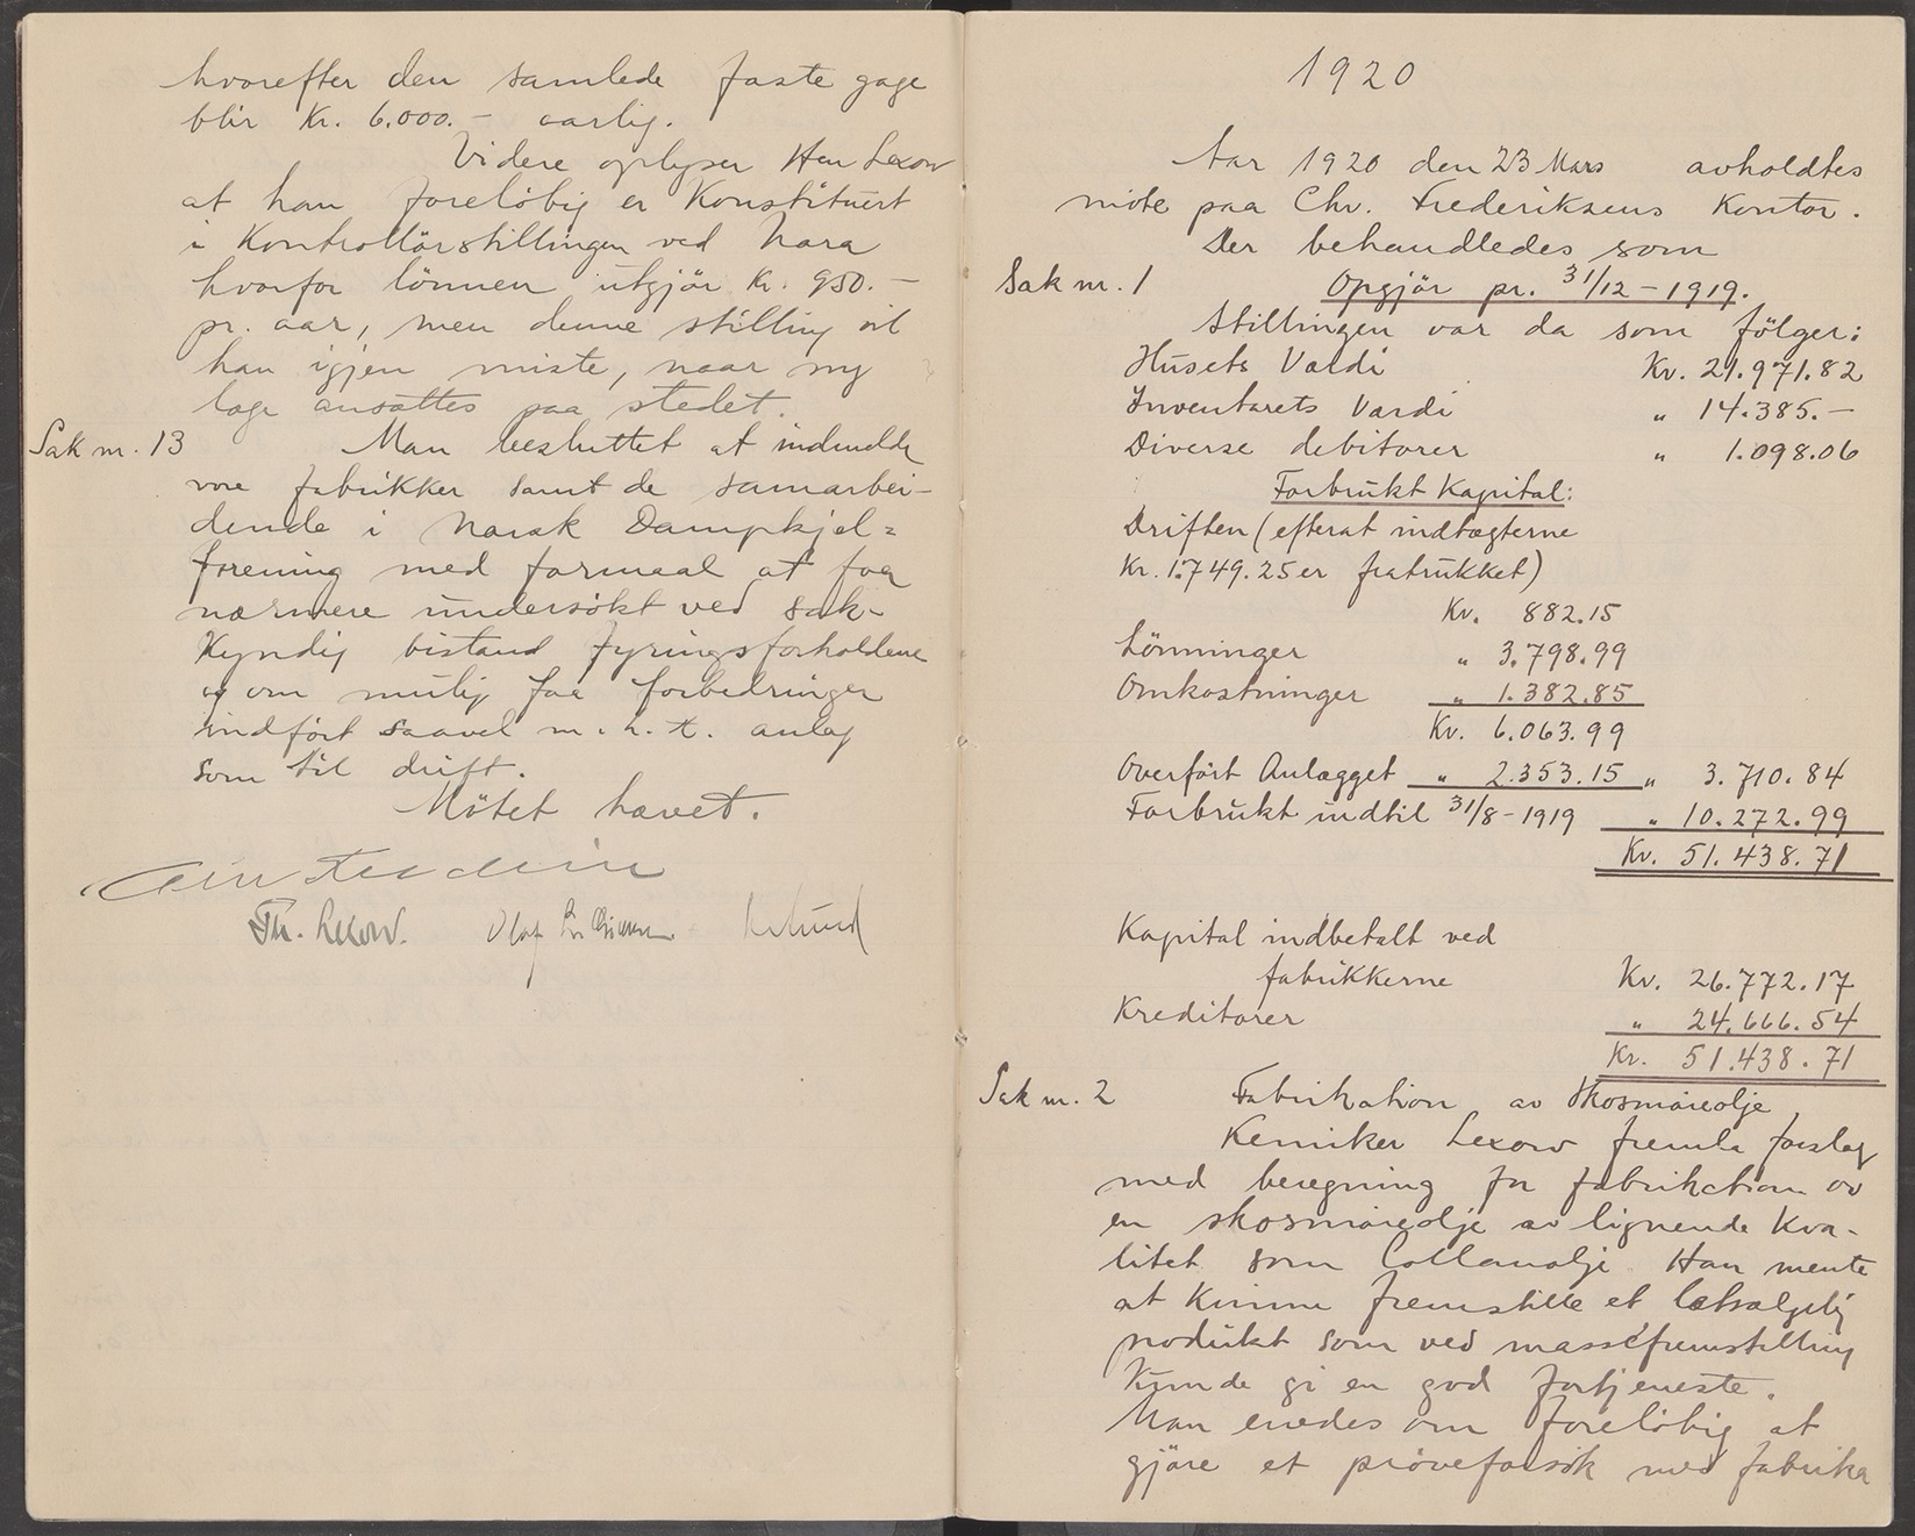 hvorefter den samlede faste gage
blir Kr. 6.000.- aarlig.
Videre oplyser Herr Lexow
at han foreløbig er Konstituert
i Kontrollörstillingen ved Nora
hvorfor lönnen utgjör Kr. 950.-
pr. aar, men denne stilling vil
han igjen miste, naar ny
læge ansættes paa stedet.
Sak nr. 13 Man besluttet at indmelde
vore fabrikker samt de samarbei-
dende i Norsk Dampkjel=
forening med formaal at faa
nærmere undersökt ved sak-
kyndig bistand fyringsforholdene
og om mulig faa forbedringer
indfört saavel m.h.t. anlæg
som til drift.
Mötet hævet.
Th. Lexow. Olaf
1920
Aar 1920 den 23 Mars avholdtes
möte paa Chr. Frederiksens Kontor.
Der behandledes som
Sak nr. 1 Opgjör pr. 31/12-1919.
Stillingen var da som fölger:
Husets Værdi Kr. 21.971.82
Inventarets Værdi " 14.385.-
Diverse debitorer " 1.098.06
Forbrukt Kapital:
Driften (efterat indtægterne
Kr. 1.749.25 er fratrukket)
Kr. 882.15
Lönninger " 3.798.99
Omkostninger " 1.382.85
Kr. 6.063.99
Overfört Anlægget " 2.353.15 " 3.710.84
Forbrukt indtil 31/8-1919 " 10.272.99
Kr. 51.438.71
Kapital indbetalt ved
fabrikkerne Kr. 26.772.17
Kreditorer " 24.666.54
Kr. 51.438.71
Sak nr. 2 Fabrikation av Skosmöreolje
Kemiker Lexow fremla forslag
med beregning for fabrikation av
en skosmöreolje av lignende Kva-
litet som Collanolje. Han mente
at kunne fremstille et letsælgelig
produkt som ved massefremstilling
Kunde gi en god fortjeneste.
Man enedes om foreløbig at
gjöre et pröveforsök med fabrika